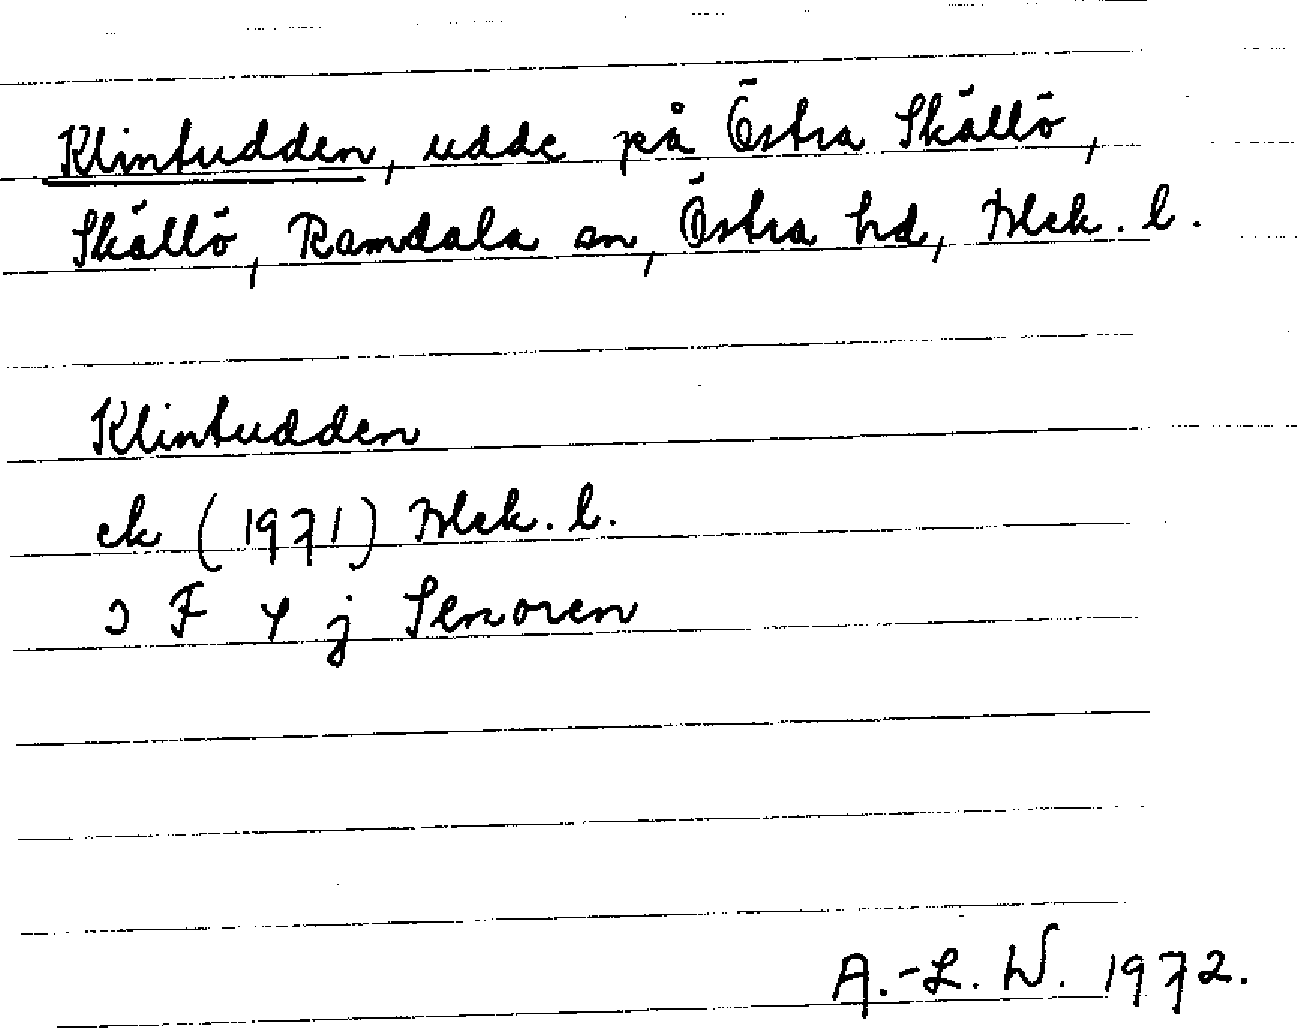 Klintudden, udde på Östra Skällö,
Skällö, Ramdala sn, Östra hd, Blek. l.
Klintudden
ek (1971) Blek. l.
3 F 4 j Senoren
A.-L. W. 1972.